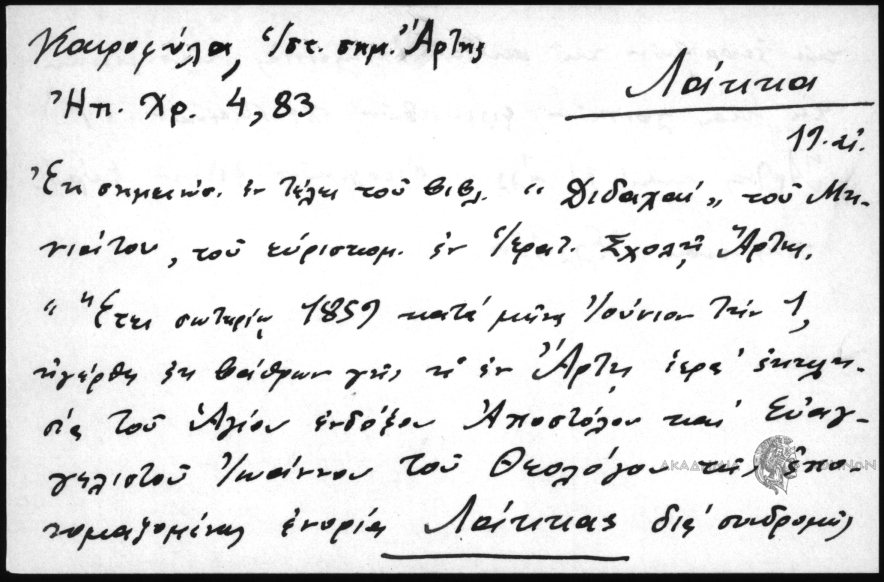 Καιροφύλα, Ἱστ. σημ. Ἄρτης
Ἠπ. Χρ. 4, 83
Λάκκα
19. αἰ.
Ἐκ σημειώσ. ἐν τέλει τοῦ βιβλ. "Διδαχαί" τοῦ Μη-
νιάτου, τοῦ εὑρισκομ. ἐν Ἱερατ. Σχολῇ Ἄρτης.
" "Ἔτει σωτηρίῳ 1859 κατά μῆνα Ἰούνιον τήν 1,
ἠγέρθη ἐκ βάθρων γῆς ἡ ἐν Ἄρτῃ ἱερά ἐκκλη-
σία τοῦ Ἁγίου ἐνδόξου Ἀποστόλου καί Εὐαγ-
γελιστοῦ Ἰωάννου τοῦ Θεολόγου τῆς ἐπο-
νομαζομένης ἐνορίας Λάκκας διά συνδρομῆς